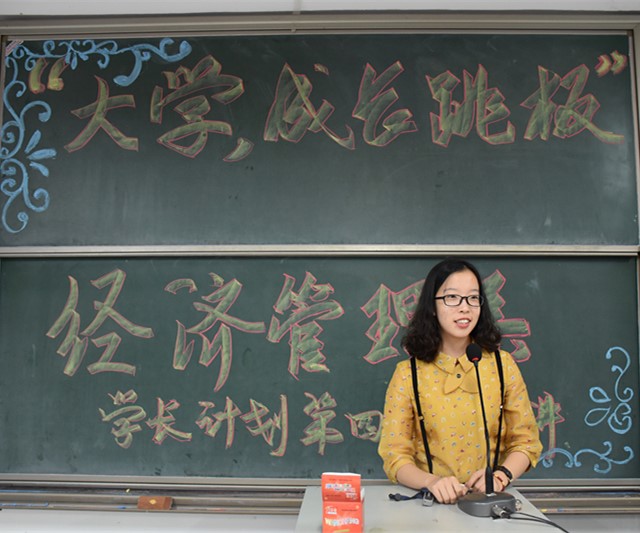 “大学，成长跳板”
经济管理
学长计划第四